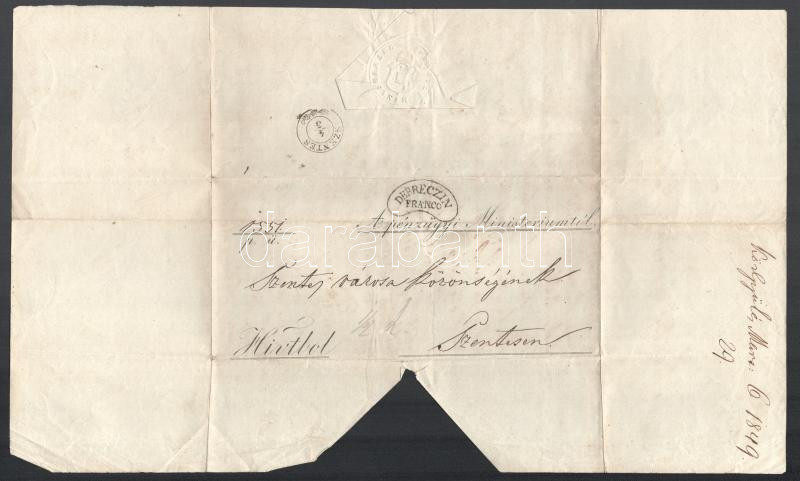 SZENTES
4/3
DEBRECZIN
FRANCO
1551.
p. ü.
A pénzügyi Ministeriumtól.
Szentes városa közönségének
Hivtbol
Szentesen
Közgyülés Mars: 6 1849
29
darabanth